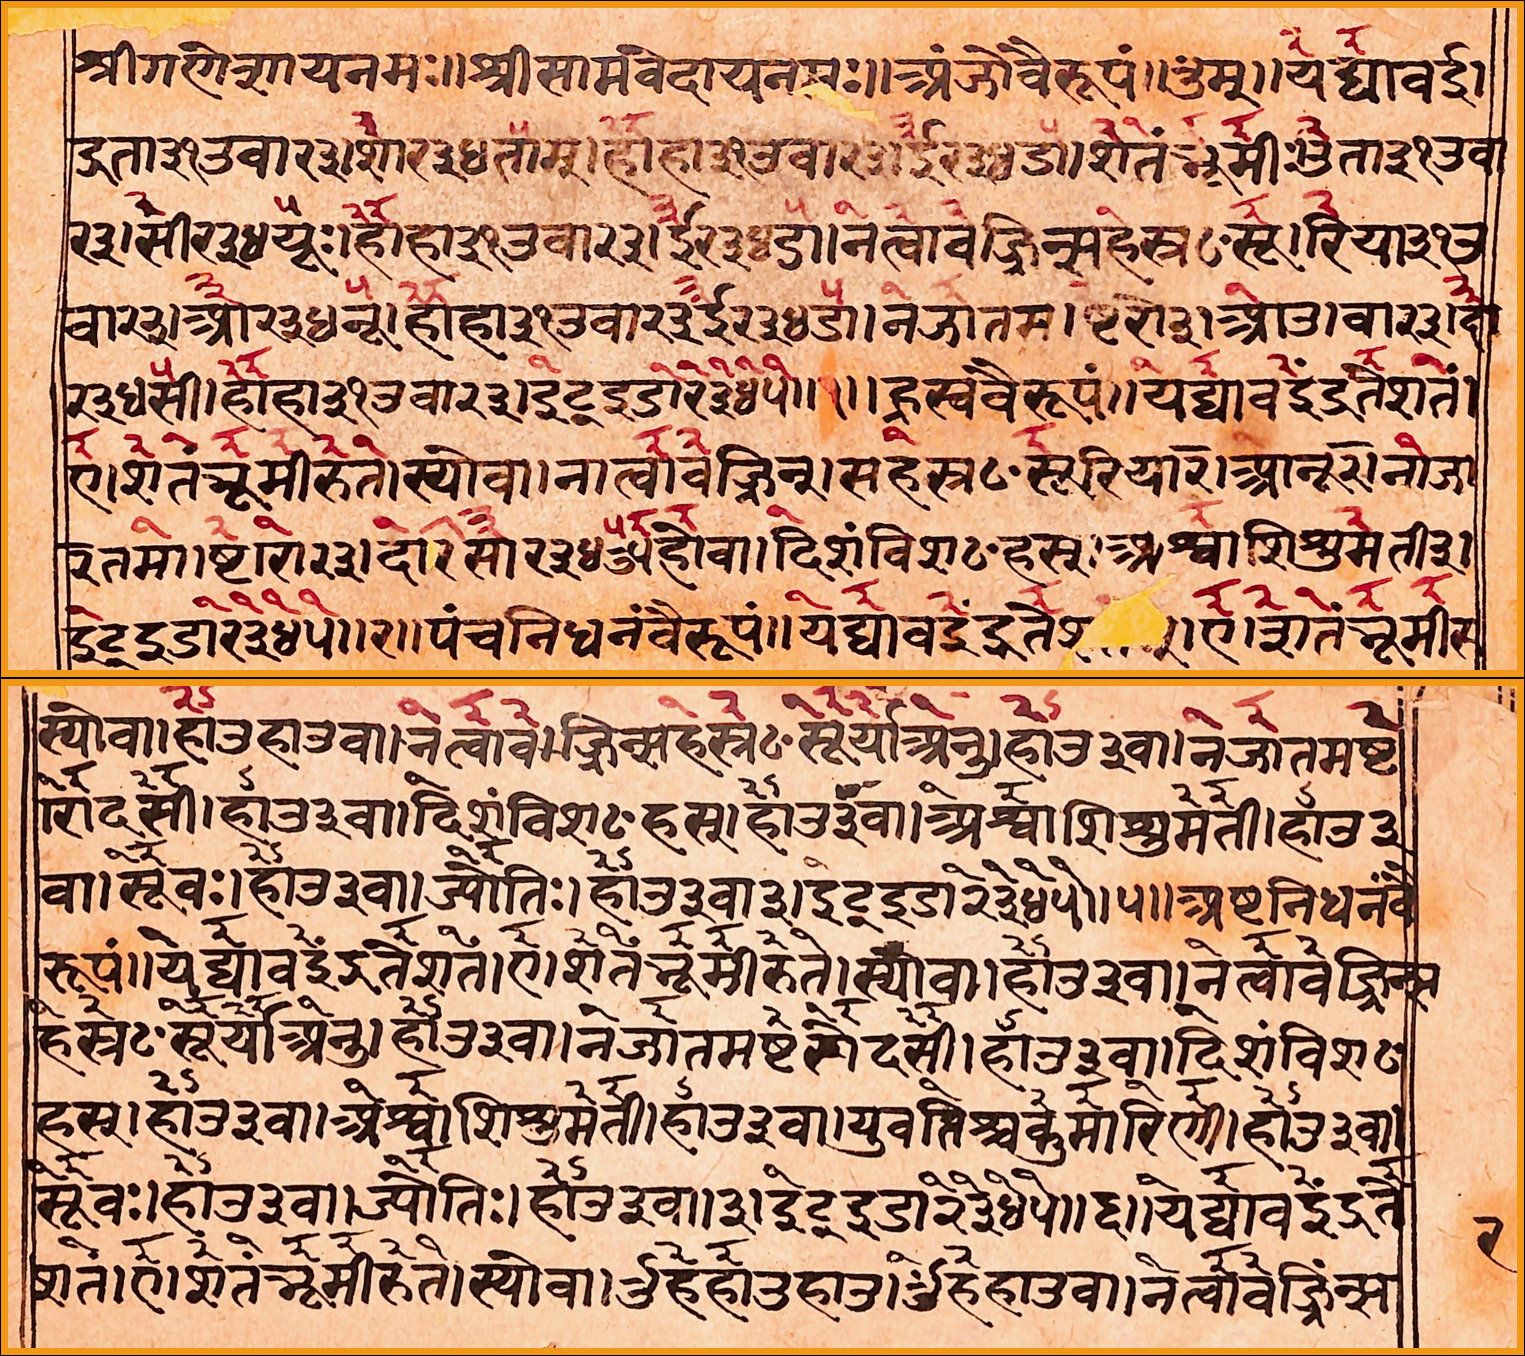 श्रीगणेशायनमः॥श्रीसामवेदायनमः॥अंजोवैरूपं॥हुम्॥यद्द्यावईं।
द्रता३१उवा२३।शा२३४ताम्।हाहा३१उवा२३।ई२३४डा।शतंभूमीरुता३१उवा
२३।सी२३४यूः।हाहा३१उवा२३।ई२३४डा।नत्वावज्रिन्सहस्रꣳसू।रिया३१उ
वा२३।आ२३४नू।हाहा३१उवा२३ई२३४डा।नजातम।ष्टरो३।ओउ।वा२३।दा
२३४सी।हाहा३१उवा२३।इट्इडा२३४५॥१॥ह्रस्वंवैरूपं॥यद्द्यावइंद्रतेशतं।
ए।शतंभूमीरुत।स्योवा।नात्वावज्रिन्।सहस्रꣳसूरिया२।आनू२।नाजा
२तमा।ष्टारो२३।दा२सा२३४औहोवा।दिशंविशꣳहस्।अश्वाशिशुमती३।
इट्इडा२३४५॥२॥पंचनिधनंवैरूपं॥यद्द्यावइंद्रतेश।ए।शतंभूमीरु
स्योवा।हाउहाउवा।नत्वाव।ज्रिन्सहस्रꣳसूर्याअनु।हाउ३वा।नजातमष्ट
रोदसी।हाउ३वा।दिशंविशꣳहस्।हाउ३वा।अश्वाशिशुमती।हाउ३
वा।सूवः।हाउ३वा।ज्योतिः।हाउ३वा३।इट्इडा२३४५॥५॥अष्टनिधनंवै
रूपं॥यद्द्यावइंद्रतेशतं।ए।शतंभूमीरुत।स्योवा।हाउ३वा।नत्वावज्रिन्स
हस्रꣳसूर्याअनु।हाउ३वा।नजातमष्टरोदसी।हाउ३वा।दिशंविशꣳ
हस्।हाउ३वा।अश्वाशिशुमती।हाउ३वा।युवतिश्चकुमारिणी।हाउ३वा।
सूवः।हाउ३वा।ज्योतिः।हाउ३वा।३।इट्इडा२३४५॥६॥यद्द्यावइंद्रते
शतं।ए।शतंभूमीरुत।स्योवा।हहाउहाउ।हहाउवा।नत्वावज्रिंन्स
२